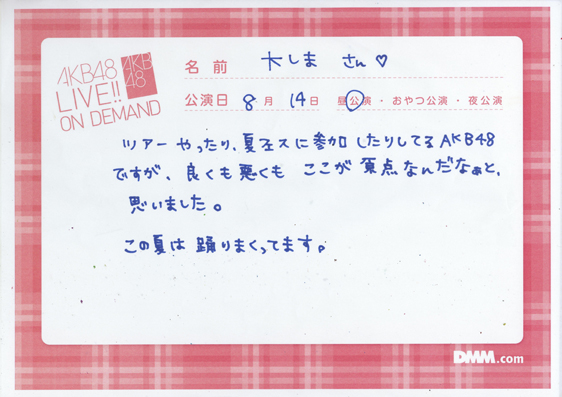 AKB48
LIVE!!
ON DEMAND
AKB
48
名前 大しま さん♡
公演日 8月 14日 昼公演・おやつ公演・夜公演
ツアーやったり、夏フェスに参加したりしてるAKB48
ですが、良くも悪くも ここが原点なんだなぁと、
思いました。
この夏は踊りまくってます。
DMM.com